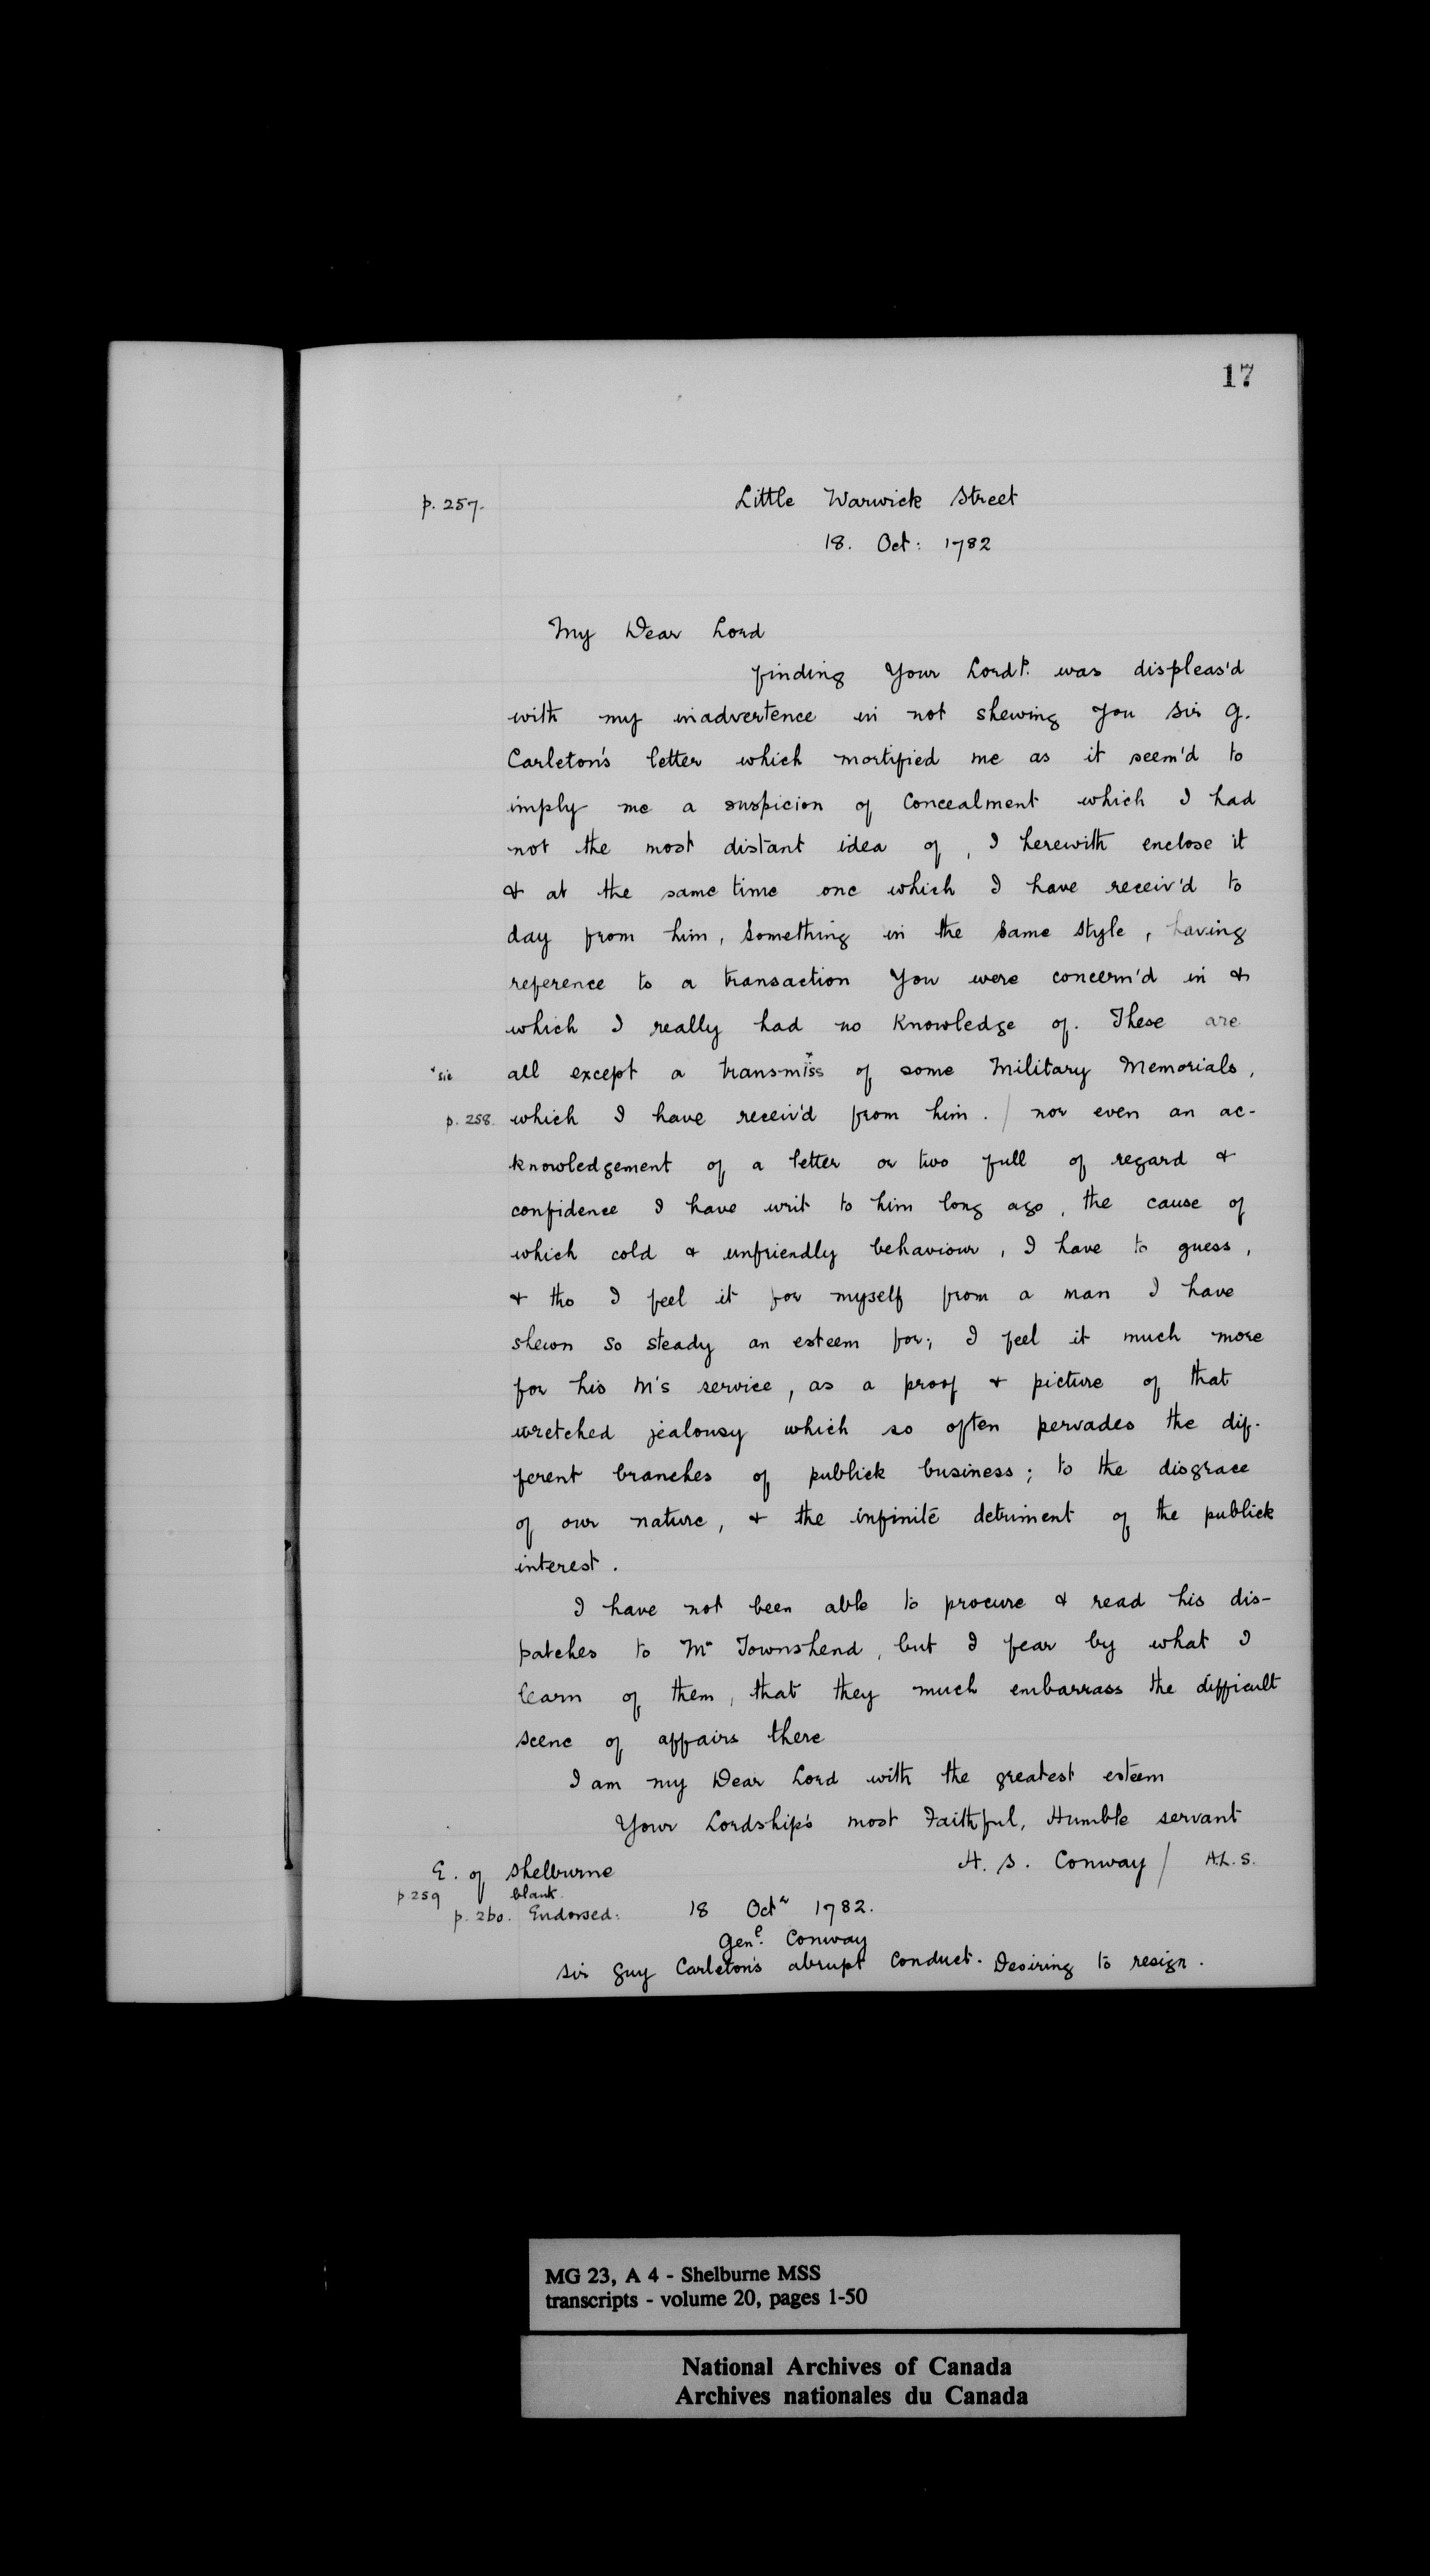 17
p. 257.
Little Warwick Street
18. Oct: 1782
My Dear Lord
finding Your Lordp. was displeas'd
with my inadvertence in not shewing you Sir G.
Carleton's letter which mortified me as it seem'd to
imply me a suspicion of Concealment which I had
not the most distant idea of, I herewith enclose it
& at the same time one which I have receiv'd to
day from him, something in the same style, having
reference to a transaction You were concern'd in &
which I really had no Knowledge of. These are
*sic all except a transmiss* of some Military Memorials,
p. 258. which I have receiv'd from him. / nor even an ac-
knowledgement of a letter or two full of regard &
confidence I have writ to him long ago, the cause of
which cold & unfriendly behaviour, I have to guess,
& tho I feel it for myself from a man I have
shewn so steady an esteem for; I feel it much more
for his M's service, as a proof & picture of that
wretched jealousy which so often pervades the dif-
ferent branches of publick business; to the disgrace
of our nature, & the infinite detriment of the publick
interest.
I have not been able to procure & read his dis-
patches to Mr Townshend, but I fear by what I
learn of them, that they much embarrass the difficult
scene of affairs there
I am my Dear Lord with the greatest esteem
Your Lordship's most Faithful, Humble servant
H. S. Conway / A.L.S.
E. of Shelburne
p. 259 blank.
p. 260. Endorsed: 18 Octr 1782.
Genl. Conway
Sir Guy Carleton's abrupt Conduct. Desiring to resign.
MG 23, A 4 - Shelburne MSS
transcripts - volume 20, pages 1-50
National Archives of Canada
Archives nationales du Canada